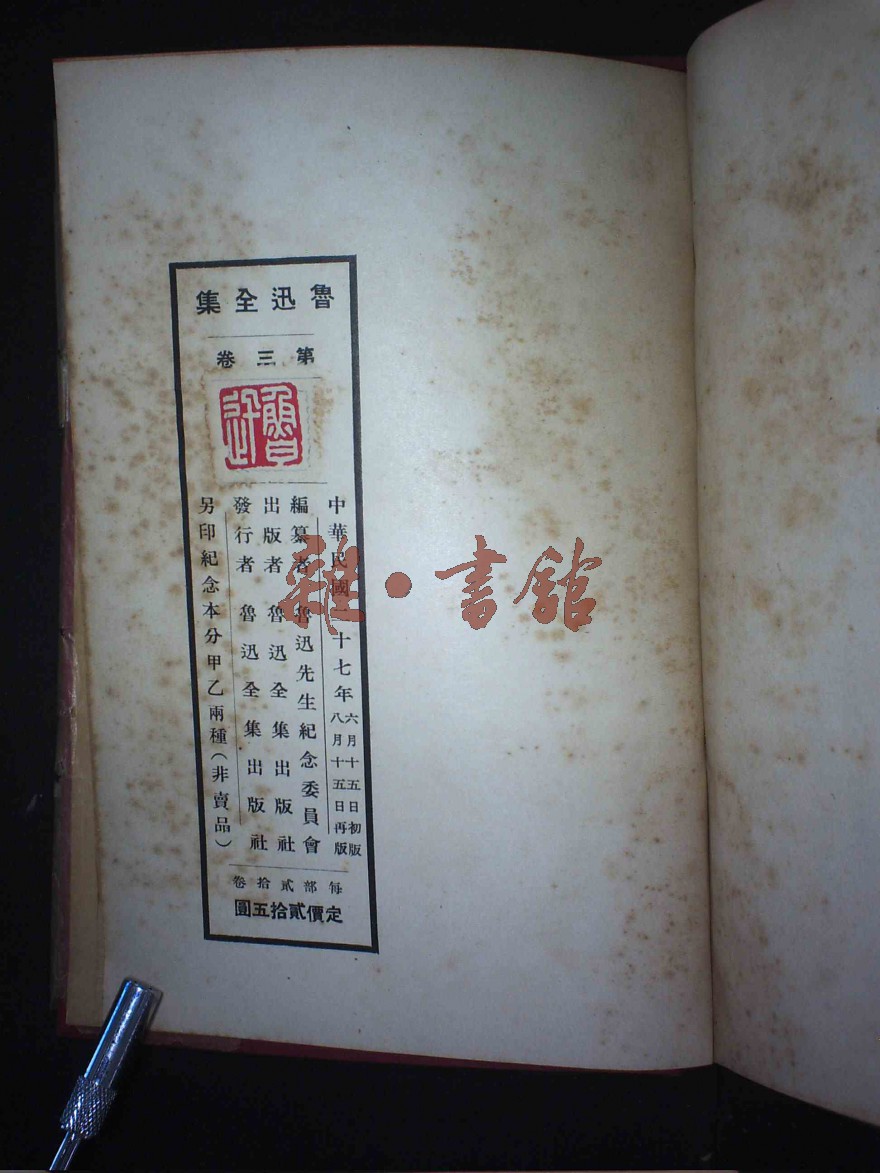 魯迅全集
第三卷
魯迅
中華民國二十七年
六月十五日初版
八月十五日再版
編纂者 魯迅先生紀念委員會
出版者 魯迅全集出版社
發行者 魯迅全集出版社
另印紀念本分甲乙兩種(非賣品)
每部貳拾卷
定價貳拾五圓
雜·書館